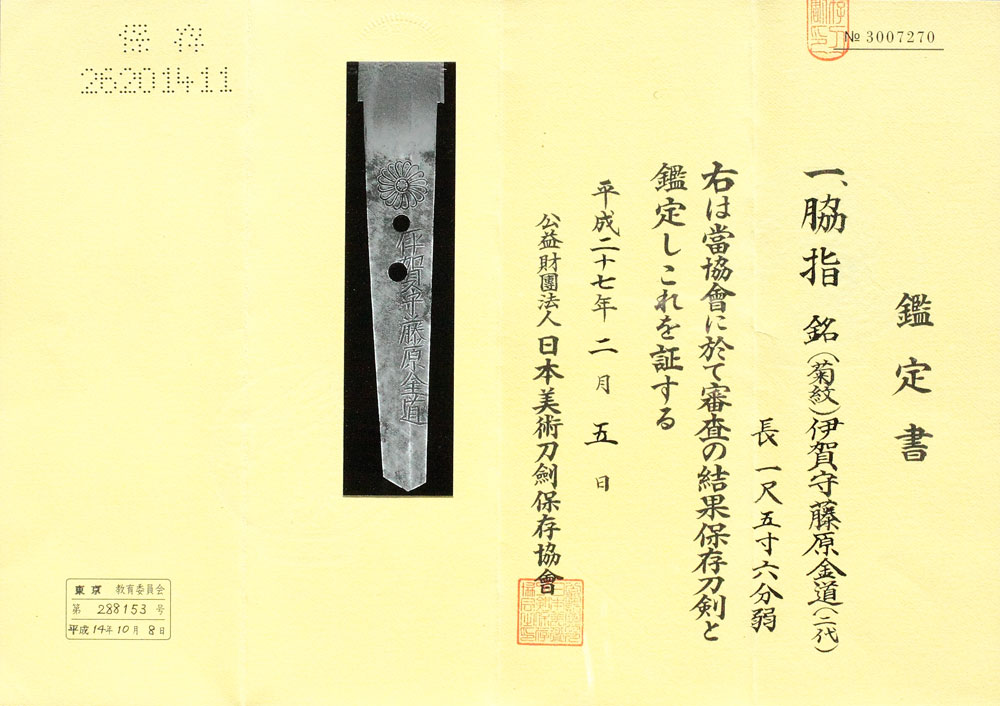 № 3007270
鑑定書
一、脇指 銘(菊紋)伊賀守藤原金道(二代)
長一尺五寸六分弱
右は當協會に於て審査の結果保存刀剣と
鑑定しこれを証する
平成二十七年二月五日
公益財團法人日本美術刀劍保存協會
伊賀守藤原金道
保存
26201411
東京 教育委員会
第 288153 号
平成14年10月8日